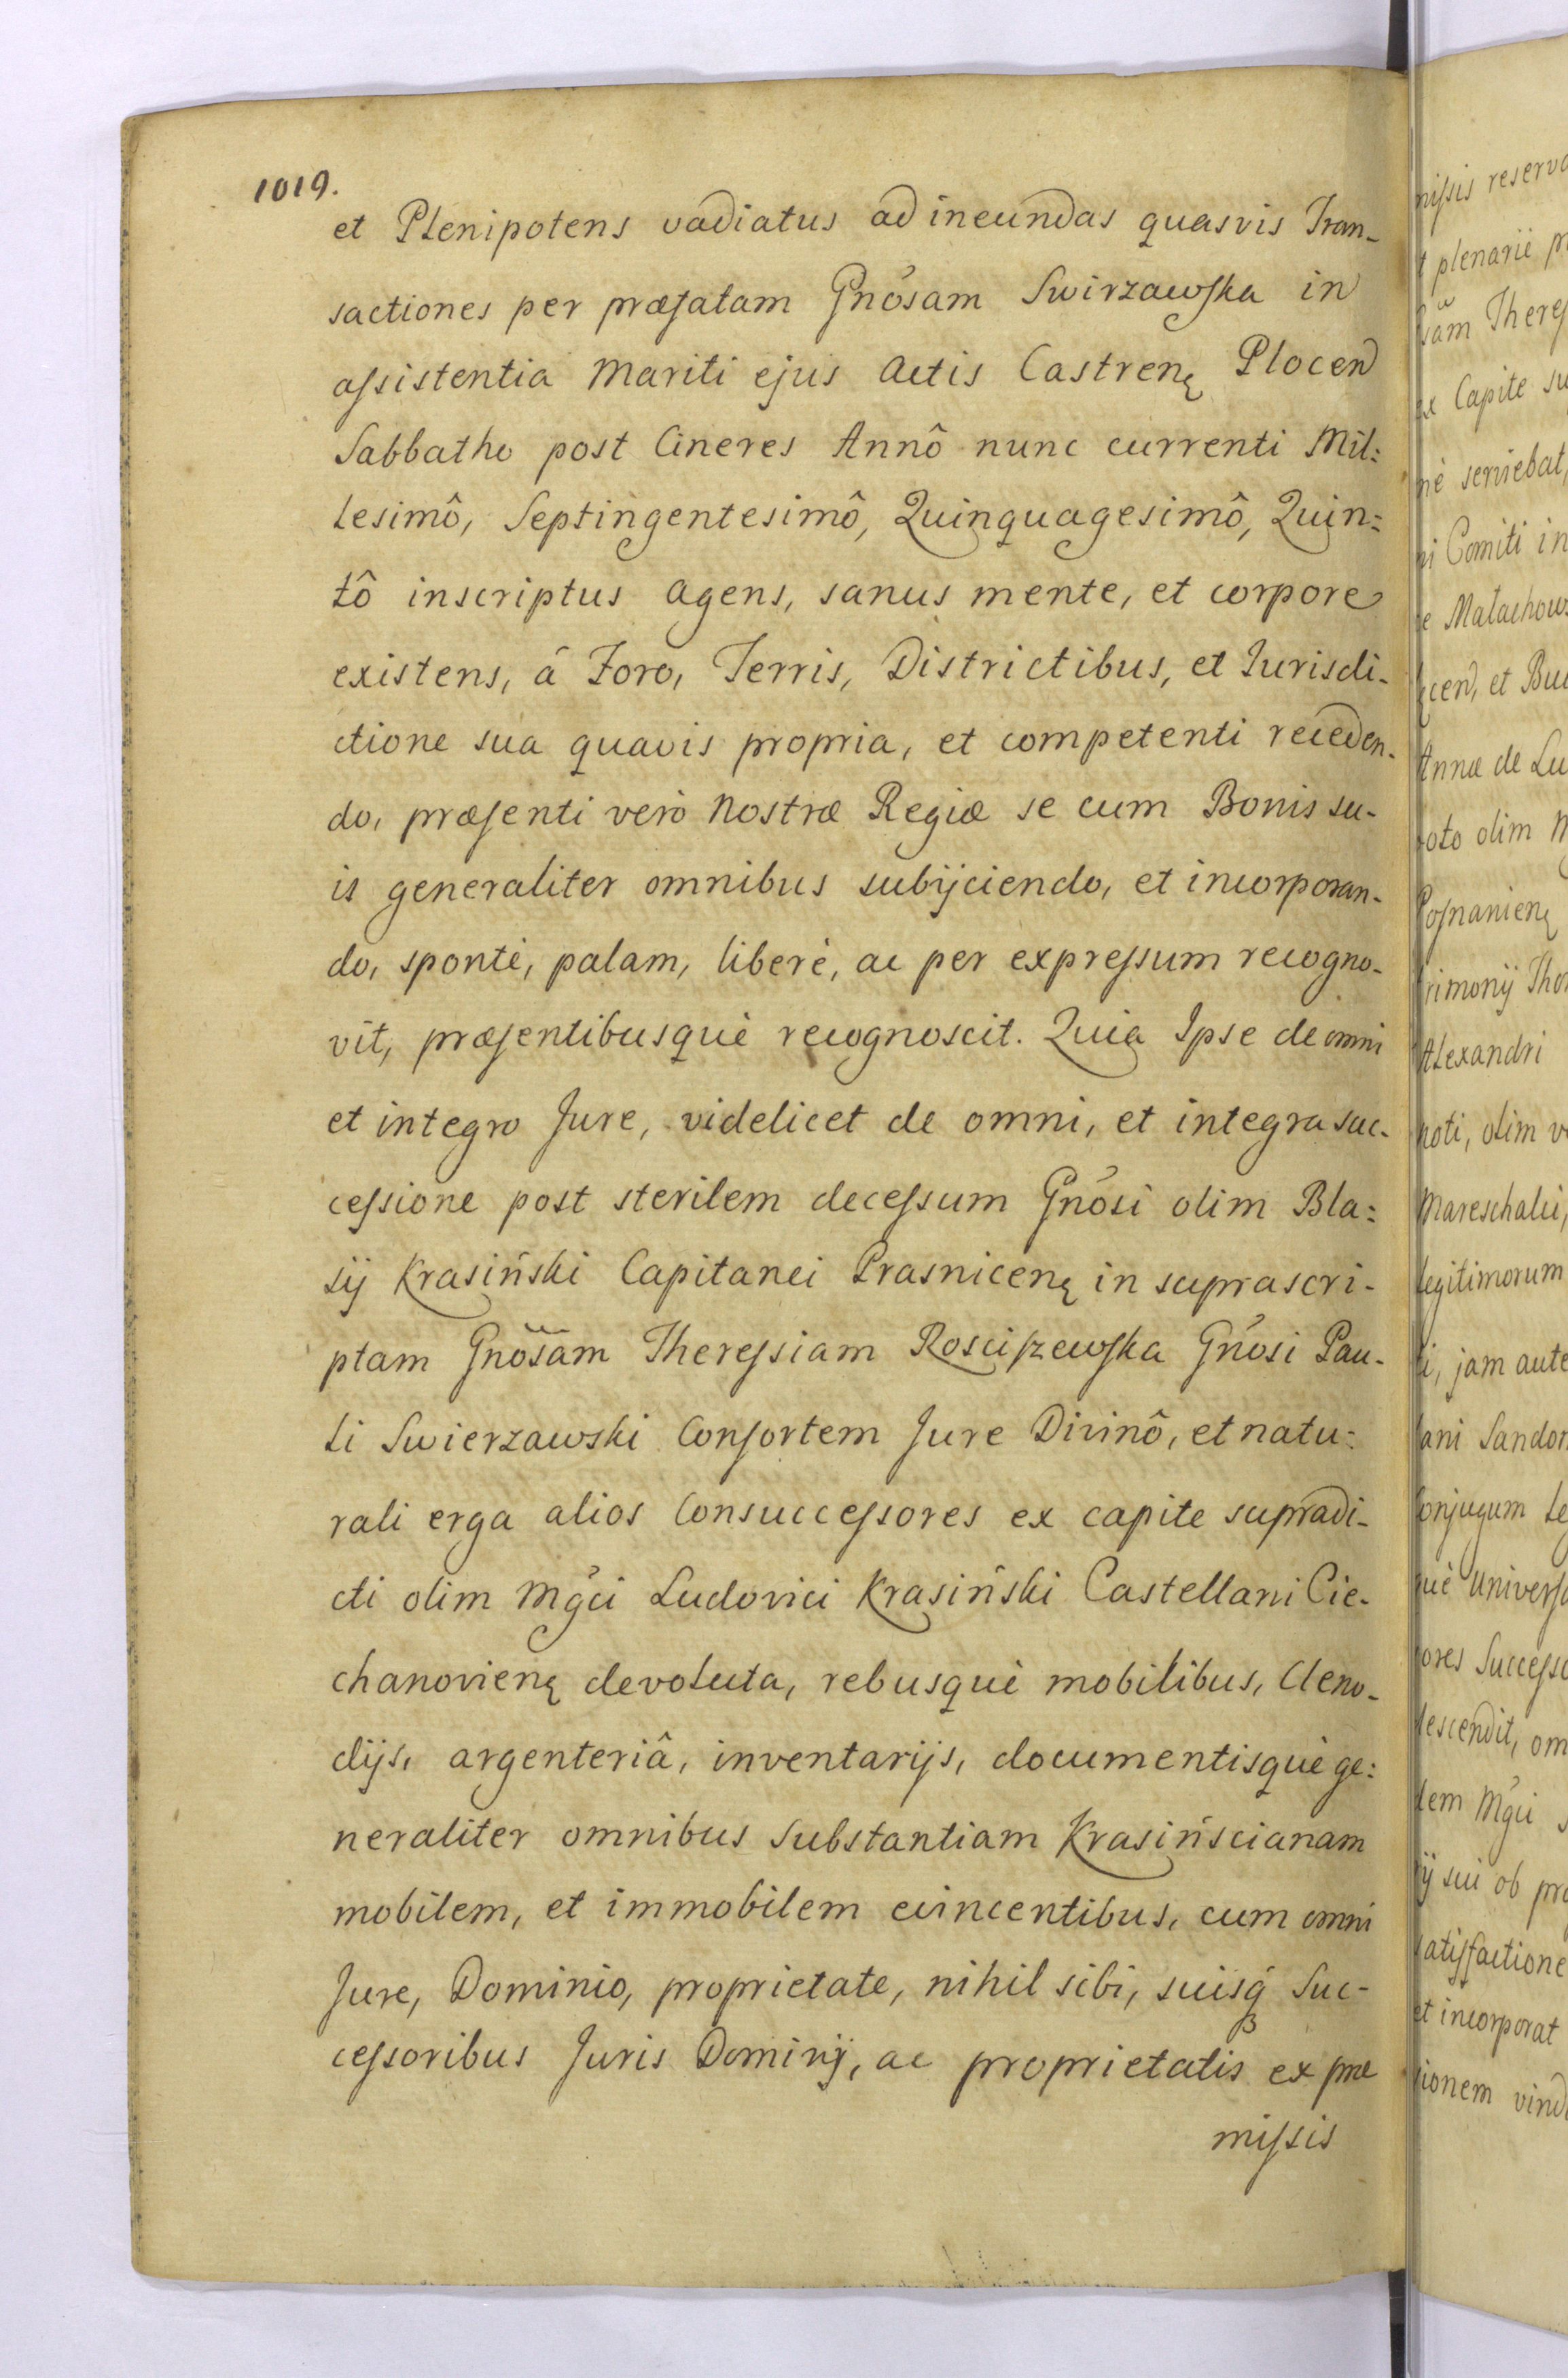 1019.
et Plenipotens vadiatus ad ineundas quasvis Tran-
sactiones per præfatam Gnosam Swirzawska in
assistentia Mariti ejus Actis Castrenę Plocen
Sabbatho post Cineres Annô nunc currenti Mil:
lesimô, Septingentesimô, Quinquagesimô, Quin:
tô inscriptus agens, sanus mente, et corpore
existens, á Foro, Terris, Districtibus, et Jurisdi-
ctione sua quavis propria, et competenti receden-
do, præsenti verò Nostræ Regiæ se cum Bonis su-
is generaliter omnibus subijciendo, et incorporan-
do, spontè, palam, liberè, ac per expressum recogno-
vit, præsentibusquè recognoscit. Quia Ipse de omni
et integro Jure, videlicet de omni, et integra suc-
cessione post sterilem decessum Gnosi olim Bla:
sij Krasiński Capitanei Prasnicenę in suprascri-
ptam Gnosam Theressiam Rosciszewska Gnosi Pau-
li Swierzawski Consortem Jure Divinô, et natu:
rali erga alios Consuccessores ex capite supradi-
cti olim Mgci Ludovici Krasiński Castellani Cie-
chanovienę devoluta, rebusquè mobilibus, Cleno-
dijs, argenteriâ, inventarijs, documentisquè ge:
neraliter omnibus Substantiam Krasińscianam
mobilem, et immobilem evincentibus, cum omni
Jure, Dominio, proprietate, nihil sibi, suisq́ Suc-
cessoribus Juris Dominij, ac proprietatis ex præ
missis
nissis reserva
plenariè
Theres
Capite su
serviebat,
Comiti in
Matachows
et Bu
Annæ de Lu
olim
Posnanienę
Alexandri
olim
Mareschalci,
legitimorum
jam aute
Sandom
Conjugum
Univers
Successo
descendit, om
Mgci
sui ob
satisfactione
et incorporat
vind